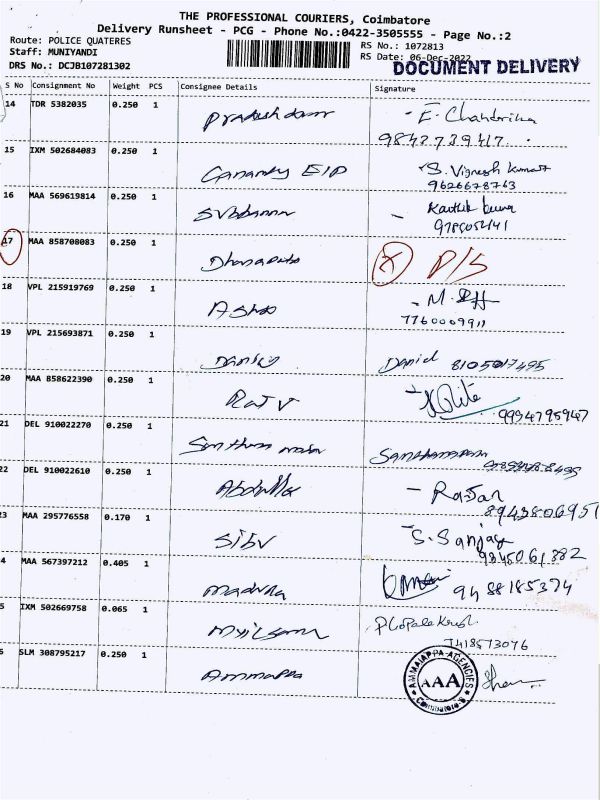 THE PROFESSIONAL COURIERS, Coimbatore
Delivery Runsheet - PCG - Phone No.:0422-3505555 - Page No.:2
Route: POLICE QUATERES
Staff: MUNIYANDI
DRS No.: DCJB107281302
RS No.: 1072813
RS Date: 06-Dec-2022
DOCUMENT DELIVERY
S No Consignment No Weight PCS Consignee Details Signature
14 TDR 5382035 0.250 1 - E. Chandrika
15 IXM 502684083 0.250 1 S. Vignesh Kumar
9626678763
16 MAA 569619814 0.250 1 - Karthik
17 MAA 858708083 0.250 1 X D/S
18 VPL 215919769 0.250 1 - M.
7760009911
19 VPL 215693871 0.250 1 Daniel 8105017495
20 MAA 858622390 0.250 1 Raj V
9994795947
21 DEL 910022270 0.250 1
22 DEL 910022610 0.250 1 Abdulla - Rajan
8943806951
3 MAA 295776558 0.170 1 Sibu - S. Sanjay
9845061382
4 MAA 567397212 0.405 1 9488185374
5 IXM 502669758 0.065 1
7418573076
6 SLM 308795217 0.250 1 Ammappa
AMMAIAPPA AGENCIES
AAA
Coimbatore-9